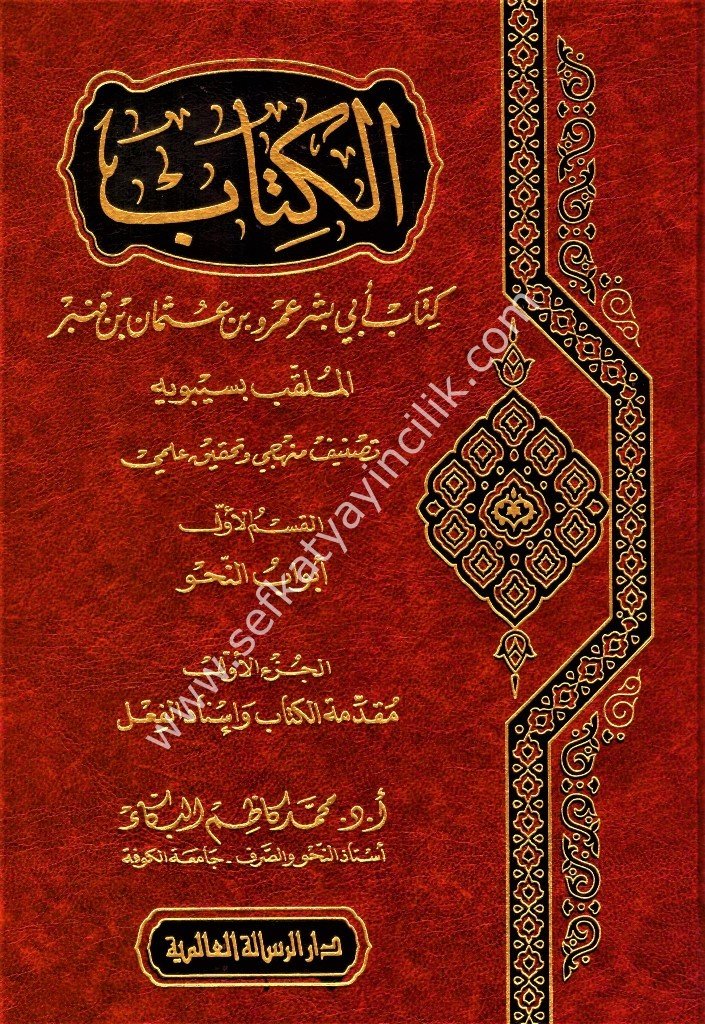 الكِتَاب
كِتَاب أبي بشر عمرو بن عثمان بن قنبر
المُلقّب بسيبويه
تصنيف منهجي وتحقيق علمي
القسم الأوّل
أبواب النّحو
الجُزء الأوّل
مُقدّمة الكتاب وَإسناد الفعل
أ.د. محمّد كاظم البكّاء
أستاذ النّحو والصّرف - جامعة الكوفة
دار الرسالة العالمية
www.sefkatyayincilik.com